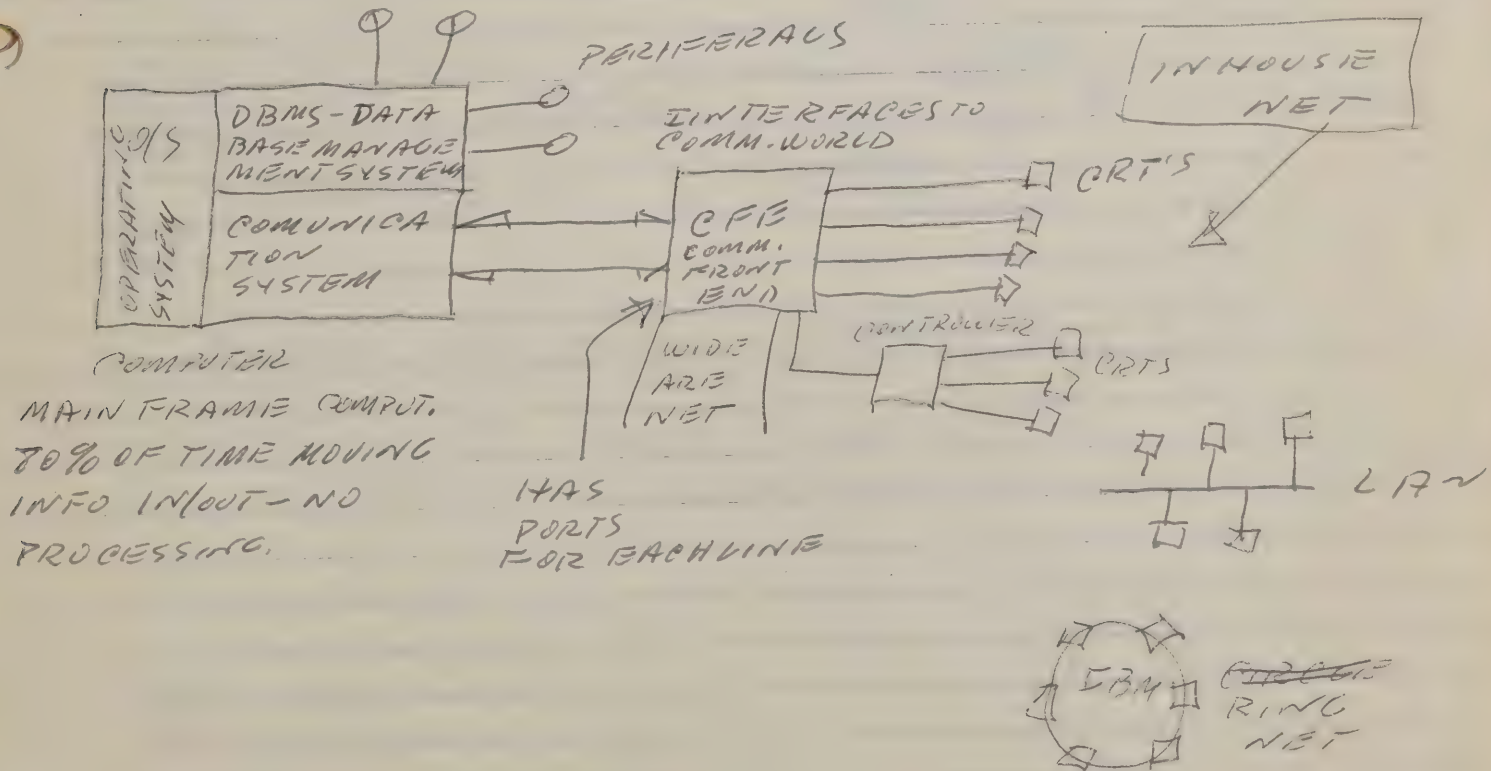 PERIFERALS
IN HOUSE
NET
OPERATING
SYSTEM
O/S
DBMS - DATA
BASE MANAGE
MENT SYSTEM
COMUNICA
TION
SYSTEM
IINTERFACES TO
COMM. WORLD
CFE
COMM.
FRONT
END
CRT'S
WIDE
ARE
NET
CONTROLLER
CRTS
COMPUTER
MAIN FRAME COMPUT.
80% OF TIME MOVING
INFO IN/OUT - NO
PROCESSING.
HAS
PORTS
FOR EACH LINE
LAN
IBM
RING
NET